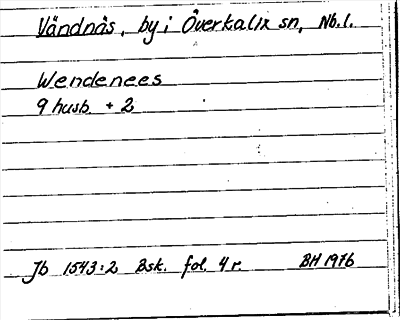 Vändnäs, by i Överkalix sn, Nb.l.
Wendenees
9 husb. + 2
Jb 1543:2 Bsk. fol. 4 r. BH 1976